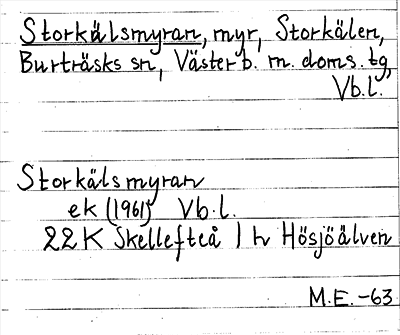 Storkålsmyran, myr, Storkålen,
Burträsks sn, Västerb. m. doms. tg,
Vb.l.
Storkålsmyran
ek (1961) Vb.l.
22K Skellefteå 1 h Hösjöålven
M.E.-63